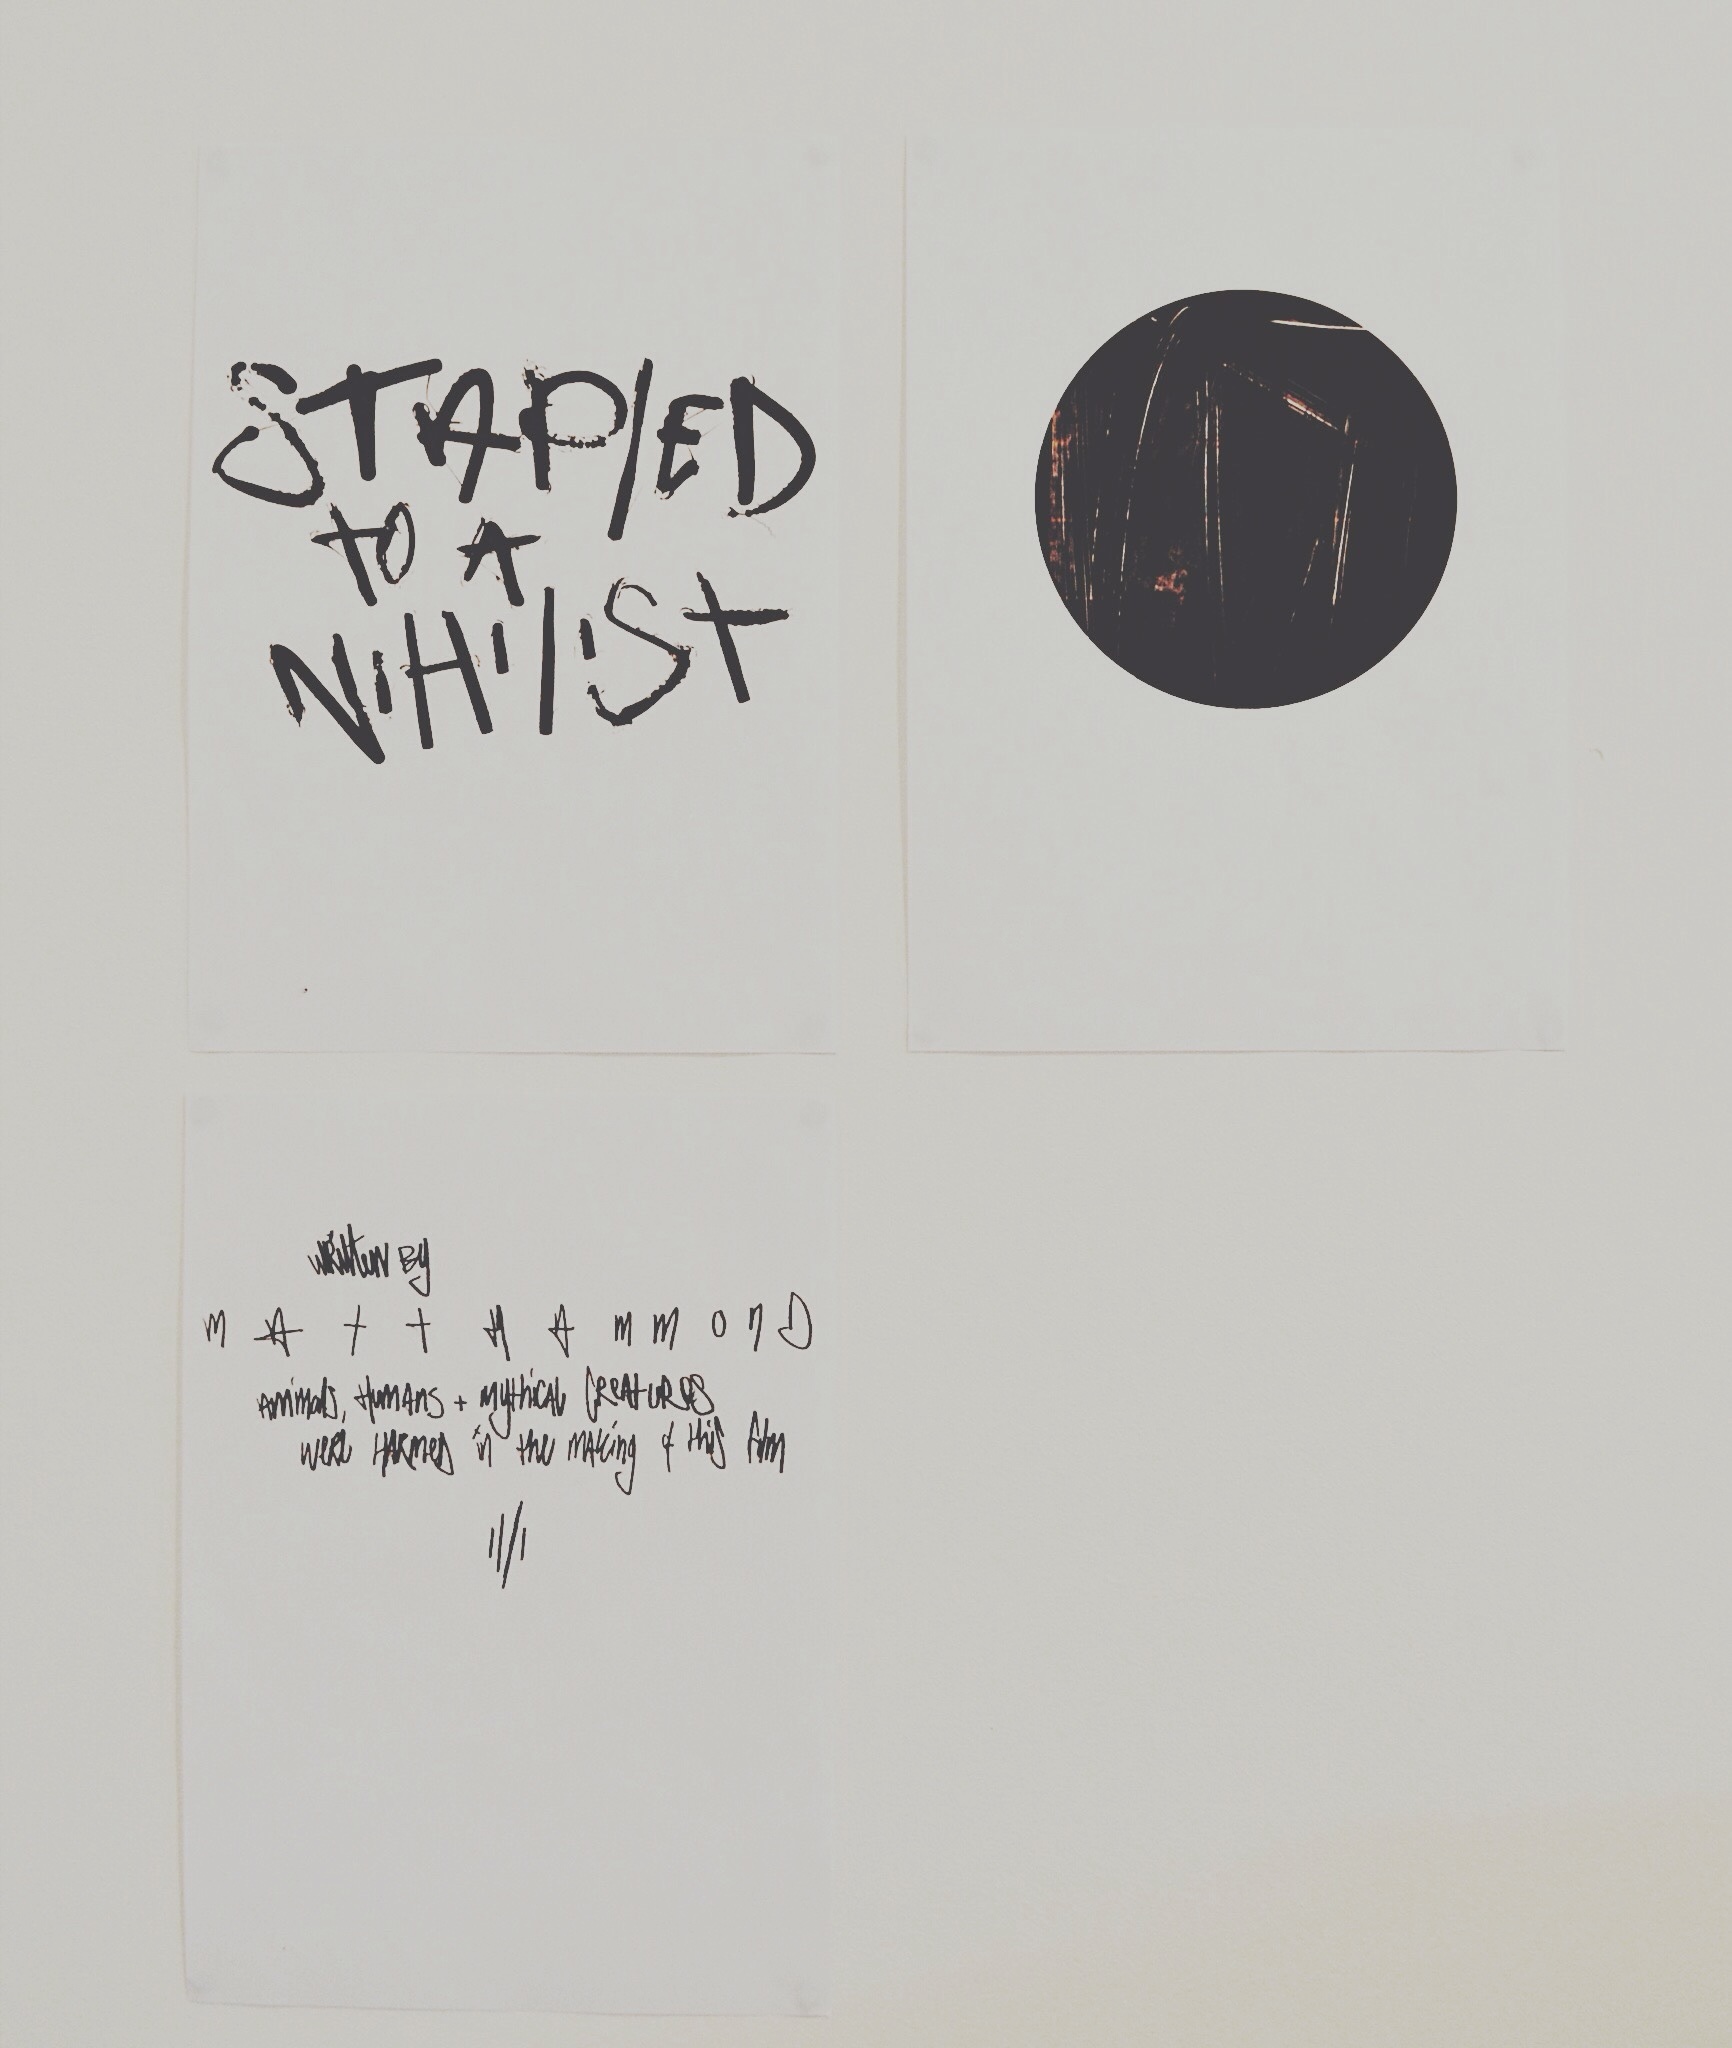 STAPlED
tO A
NiHiliST
written By
MATT HAMMOND
Animals, Humans + mythical CREATURES
were HARMED in the making of this film